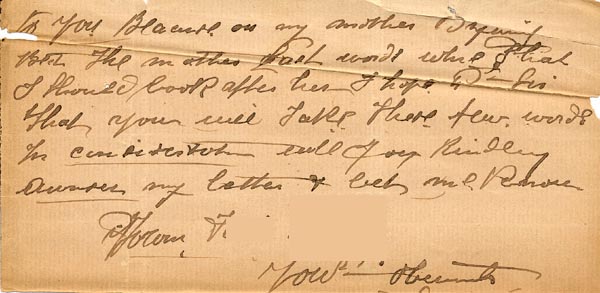 to You Because on my mother Dying
Bed the mother Last words where that
I should look after her I hope Dr Sis
that you will Take these few words
In consideration will you Kindly
answer my letter & let me Know
From F.
Your